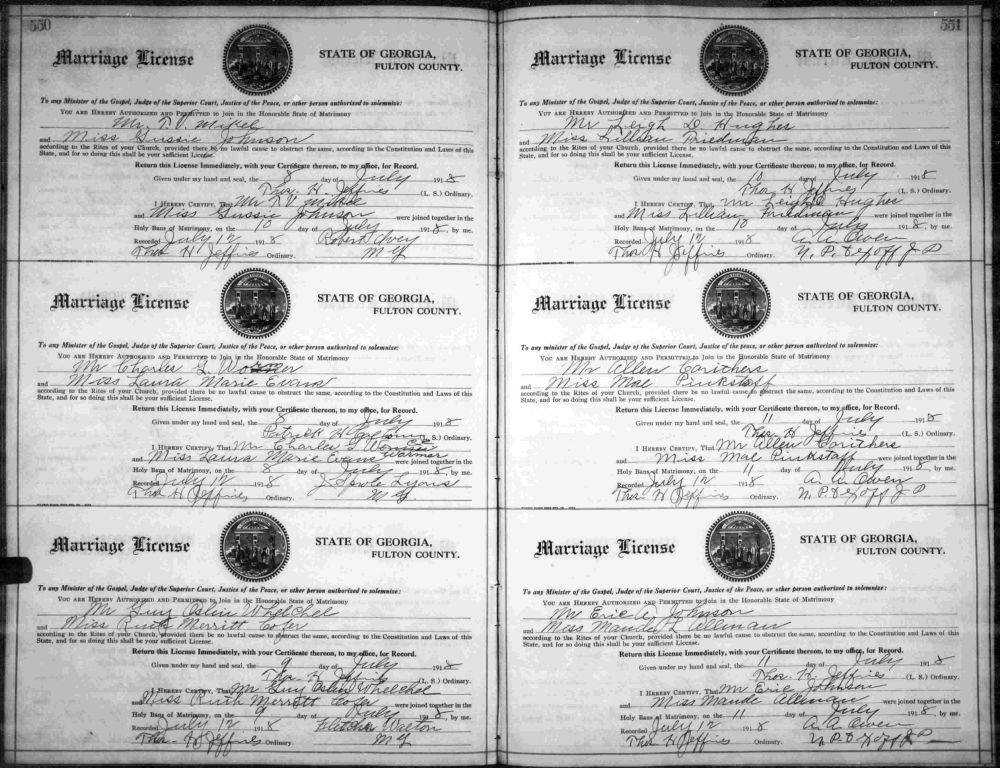 550
Marriage License
STATE OF GEORGIA,
FULTON COUNTY.
To any Minister of the Gospel, Judge of the Superior Court, Justice of the Peace, or other person authorized to solemnize:
YOU ARE HEREBY AUTHORISED AND PERMITTED to Join in the Honorable State of Matrimony
Mr. T. V. Mikel
and Miss Gussie Johnson
according to the Rites of your Church, provided there be no lawful cause to obstruct the same, according to the Constitution and Laws of this
State, and for so doing this shall be your sufficient License.
Return this License Immediately, with your Certificate thereon, to my office, for Record.
Given under my hand and seal, the 8 day of July 1918
Thos. H. Jeffries (L. S.) Ordinary.
I HEREBY CERTIFY, That Mr T. V. Mikel
and Miss Gussie Johnson were joined together in the
Holy Bans of Matrimony, on the 10 day of July 1918, by me.
Recorded July 12 1918 Robert Ivey
Thos H Jeffries Ordinary. M G
Marriage License
STATE OF GEORGIA,
FULTON COUNTY.
To any Minister of the Gospel, Judge of the Superior Court, Justice of the Peace, or other person authorized to solemnize:
YOU ARE HEREBY AUTHORISED AND PERMITTED to Join in the Honorable State of Matrimony
Mr Charles L.
and Miss Laura Marie Evans
according to the Rites of your Church, provided there be no lawful cause to obstruct the same, according to the Constitution and Laws of this
State, and for so doing this shall be your sufficient License.
Return this License Immediately, with your Certificate thereon, to my office, for Record.
Given under my hand and seal, the 8 day of July 1918
Patrick H (L. S.) Ordinary.
I HEREBY CERTIFY, That Mr Charles L
and Miss Laura Marie Evans were joined together in the
Holy Bans of Matrimony, on the 8 day of July 1918, by me.
Recorded July 12 1918 J Sprole Lyons
Thos H Jeffries Ordinary. M G
Marriage License
STATE OF GEORGIA,
FULTON COUNTY.
To any Minister of the Gospel, Judge of the Superior Court, Justice of the Peace, or other person authorized to solemnize:
YOU ARE HEREBY AUTHORISED AND PERMITTED to Join in the Honorable State of Matrimony
Mr Guy Oslin Whelchel
and Miss Ruth Merritt Cofer
according to the Rites of your Church, provided there be no lawful cause to obstruct the same, according to the Constitution and Laws of this
State, and for so doing this shall be your sufficient License.
Return this License Immediately, with your Certificate thereon, to my office, for Record.
Given under my hand and seal, the 9 day of July 1918
Thos. H Jeffries (L. S.) Ordinary.
I HEREBY CERTIFY, That Mr Guy Oslin Whelchel
and Miss Ruth Merritt Cofer were joined together in the
Holy Bans of Matrimony, on the 9 day of July 1918, by me.
Recorded July 12 1918 Walton
Thos. H Jeffries Ordinary. M G
551
Marriage License
STATE OF GEORGIA,
FULTON COUNTY.
To any Minister of the Gospel, Judge of the Superior Court, Justice of the Peace, or other person authorized to solemnize:
YOU ARE HEREBY AUTHORISED AND PERMITTED to Join in the Honorable State of Matrimony
Mr Leigh D. Hughes
and Miss Lillian Friedman
according to the Rites of your Church, provided there be no lawful cause to obstruct the same, according to the Constitution and Laws of this
State, and for so doing this shall be your sufficient License.
Return this License Immediately, with your Certificate thereon, to my office, for Record.
Given under my hand and seal, the 10 day of July 1918
Thos H Jeffries (L. S.) Ordinary.
I HEREBY CERTIFY, That Mr Leigh D Hughes
and Miss Lillian Friedman were joined together in the
Holy Bans of Matrimony, on the 10 day of July 1918, by me.
Recorded July 12 1918 A. A. Owen
Thos H Jeffries Ordinary. N. P. & Ex off J P
Marriage License
STATE OF GEORGIA,
FULTON COUNTY.
To any minister of the Gospel, Judge of the Superior Court, Justice of the peace, or other person authorized to solemnize:
YOU ARE HEREBY AUTHORIZED AND PERMITTED to Join in the Honorable State of Matrimony
Mr Allen Corichers
and Miss Mae Pinkstaff
according to the Rites of your Church, provided there be no lawful cause to obstruct the same, according to the Constitution and Laws of this
State, and for so doing this shall be your sufficient License.
Return this License Immediately, with your Certificate thereon, to my office, for Record.
Given under my hand and seal, the 11 day of July 1918
Thos. H Jeffries (L. S.) Ordinary.
I HEREBY CERTIFY, That Mr Allen Corichers
and Miss Mae Pinkstaff were joined together in the
Holy Bans of Matrimony, on the 11 day of July 1918, by me.
Recorded July 12 1918 A. A. Owen
Thos H Jeffries Ordinary. N. P. & Ex off J P
Marriage License
STATE OF GEORGIA,
FULTON COUNTY.
To any Minister of the Gospel, Judge of the Superior Court, Justice of the Peace, or other person authorized to solemnize:
YOU ARE HEREBY AUTHORISED AND PERMITTED to Join in the Honorable State of Matrimony
Mr Eric A. Johnson
and Miss Maude Allman
according to the Rites of your Church, provided there be no lawful cause to obstruct the same, according to the Constitution and Laws of this
State, and for so doing this shall be your sufficient License.
Return this License Immediately, with your Certificate thereon, to my office, for Record.
Given under my hand and seal, the 11 day of July 1918
Thos. H. Jeffries (L. S.) Ordinary.
I HEREBY CERTIFY, That Mr Eric Johnson
and Miss Maude Allman were joined together in the
Holy Bans of Matrimony, on the 11 day of July 1918, by me.
Recorded July 12 1918 A. A. Owen
Thos H Jeffries Ordinary. N. P. & Ex off J P